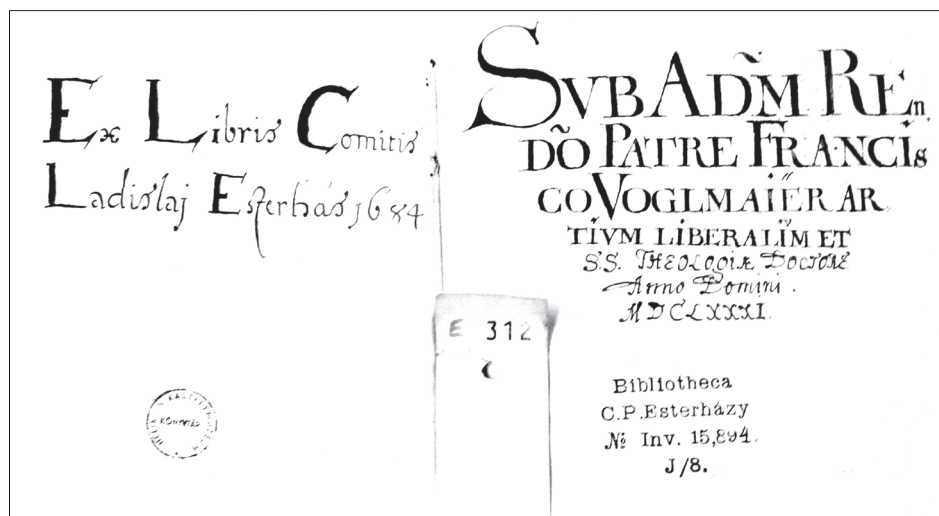 Ex Libris Comitis
Ladislaj Eszterhás 1684
KÖNYVTÁR
SVB ADM̃ REn
DÕ PATRE FRANCIs
CO VOGLMAIER AR
TIVM LIBERALIỈM ET
S.S. THEOLOGIÆ DOCTORE
Anno Domini.
MDCLXXXI.
E 312
Bibliotheca
C.P.Esterházy
№ Inv. 15,894.
J/8.